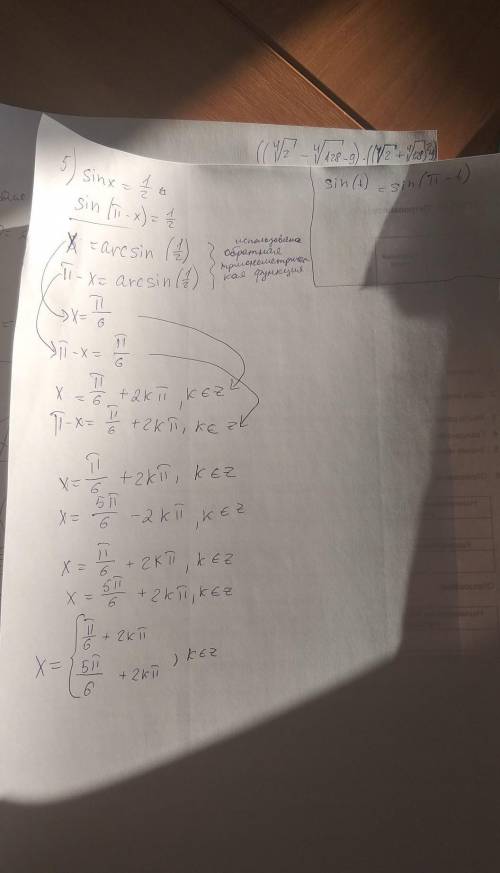 ((∜2 - ∜128 - 9) · ((∜2 + ∜128)
5) sin x = 1/2
sin(t) = sin(π - t)
sin(π - x) = 1/2
x = arcsin(1/2)
π - x = arcsin(1/2)
использована
обратная
кая функция
x = π/6
π - x = π/6
x = π/6 + 2kπ, k ∈ z
π - x = π/6 + 2kπ, k ∈ z
x = π/6 + 2kπ, k ∈ z
x = 5π/6 - 2kπ, k ∈ z
x = π/6 + 2kπ, k ∈ z
x = 5π/6 + 2kπ, k ∈ z
x = { π/6 + 2kπ
5π/6 + 2kπ , k ∈ z